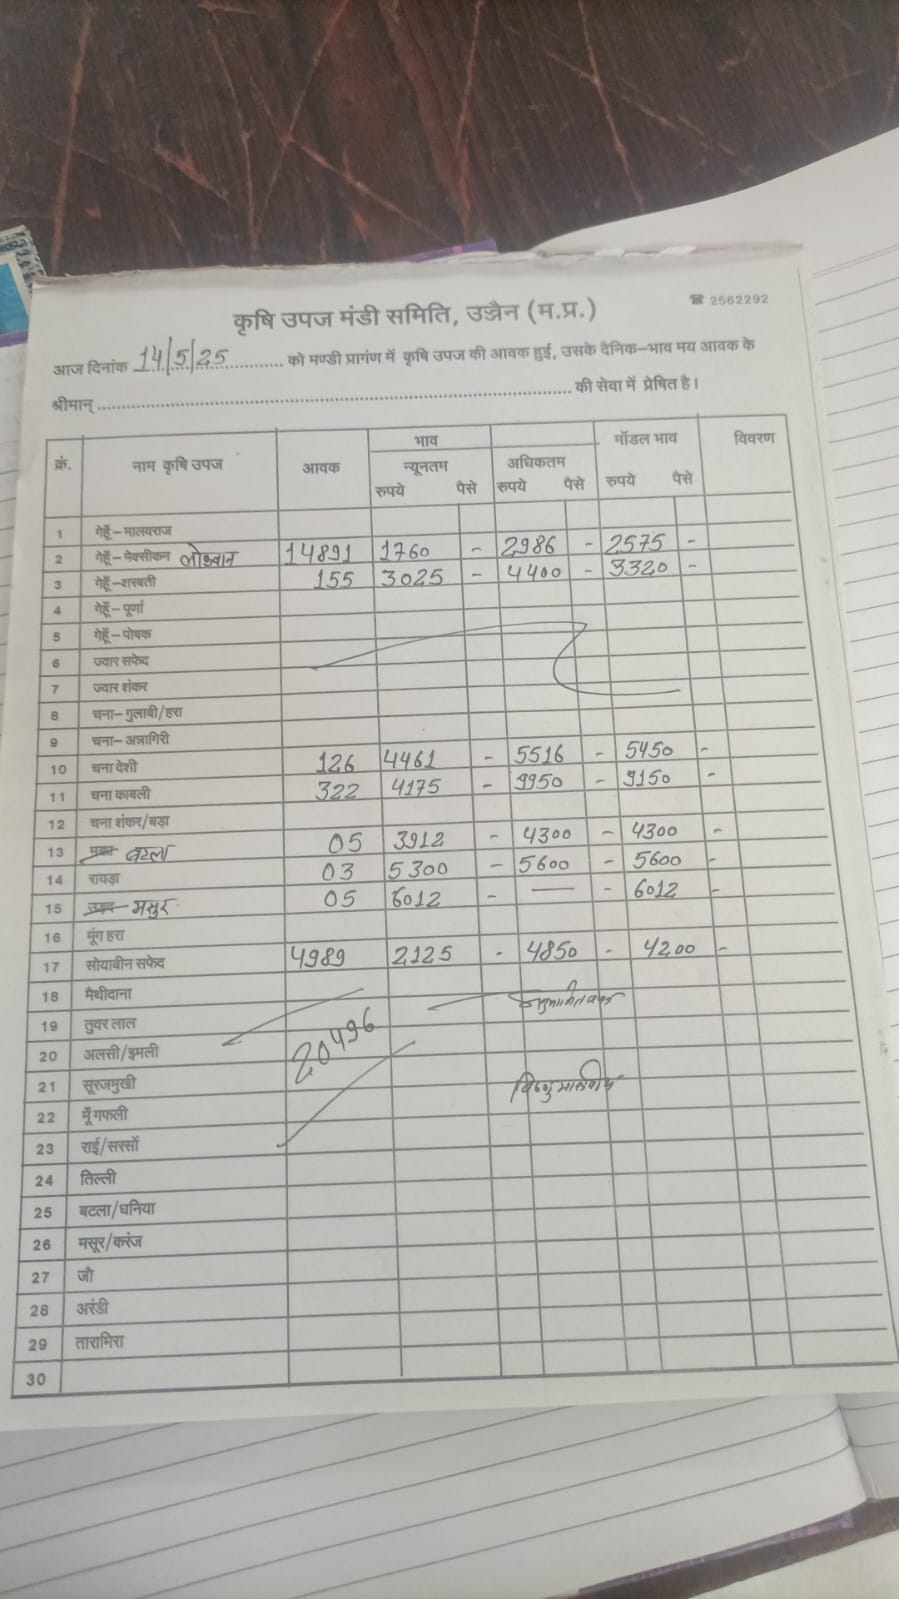 कृषि उपज मंडी समिति, उज्जैन (म.प्र.)
☎ 2562292
आज दिनांक 14/5/25 को मण्डी प्रागंण में कृषि उपज की आवक हुई, उसके दैनिक-भाव मय आवक के
श्रीमान् की सेवा में प्रेषित है।
क्रं. नाम कृषि उपज आवक भाव न्यूनतम रुपये पैसे अधिकतम रुपये पैसे मॉडल भाव रुपये पैसे विवरण
1 गेहूँ-मालवराज
2 गेहूँ-मेक्सीकन लोकवान 14891 1760 - 2986 - 2575 -
3 गेहूँ-शरबती 155 3025 - 4400 - 3320 -
4 गेहूँ-पूर्णा
5 गेहूँ-पोषक
6 ज्वार सफेद
7 ज्वार शंकर
8 चना-गुलाबी/हरा
9 चना-अन्नागिरी
10 चना देशी 126 4461 - 5516 - 5450 -
11 चना काबली 322 4175 - 9950 - 9150 -
12 चना शंकर/बड़ा
13 मक्का बटला 05 3912 - 4300 - 4300 -
14 रायड़ा 03 5300 - 5600 - 5600 -
15 उड़द मसुर 05 6012 - — - 6012 -
16 मूंग हरा
17 सोयाबीन सफेद 4989 2125 - 4850 - 4200 -
18 मैथीदाना
19 तुवर लाल
20 अलसी/इमली 20496
21 सूरजमुखी
22 मूँगफली
23 राई/सरसों
24 तिल्ली
25 बटला/धनिया
26 मसूर/करंज
27 जौ
28 अरंडी
29 तारामिरा
30